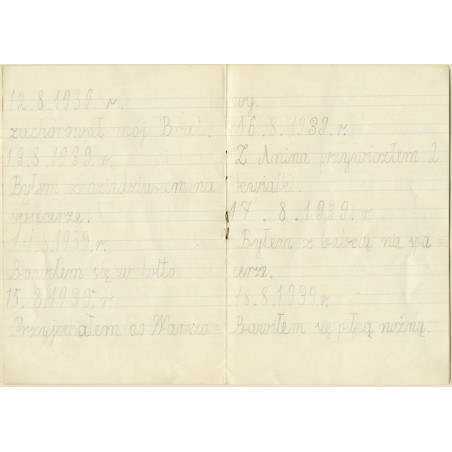 12.8.1939.r.
zachorował mój Brat.
13.8.1939.r.
Byłem z dziadziusem na
spacerze.
14.8.1939.r.
Bawiłem się w lotto
15.8.1939.r.
Przyjechałem do Warsza=
wy.
16.8.1939.r.
Z Anina przywiozłem 2
kwiatki.
17.8.1939.r
Byłem z babcią na spa=
cerze.
18.8.1939.r.
Bawiłem się piłką nożną.